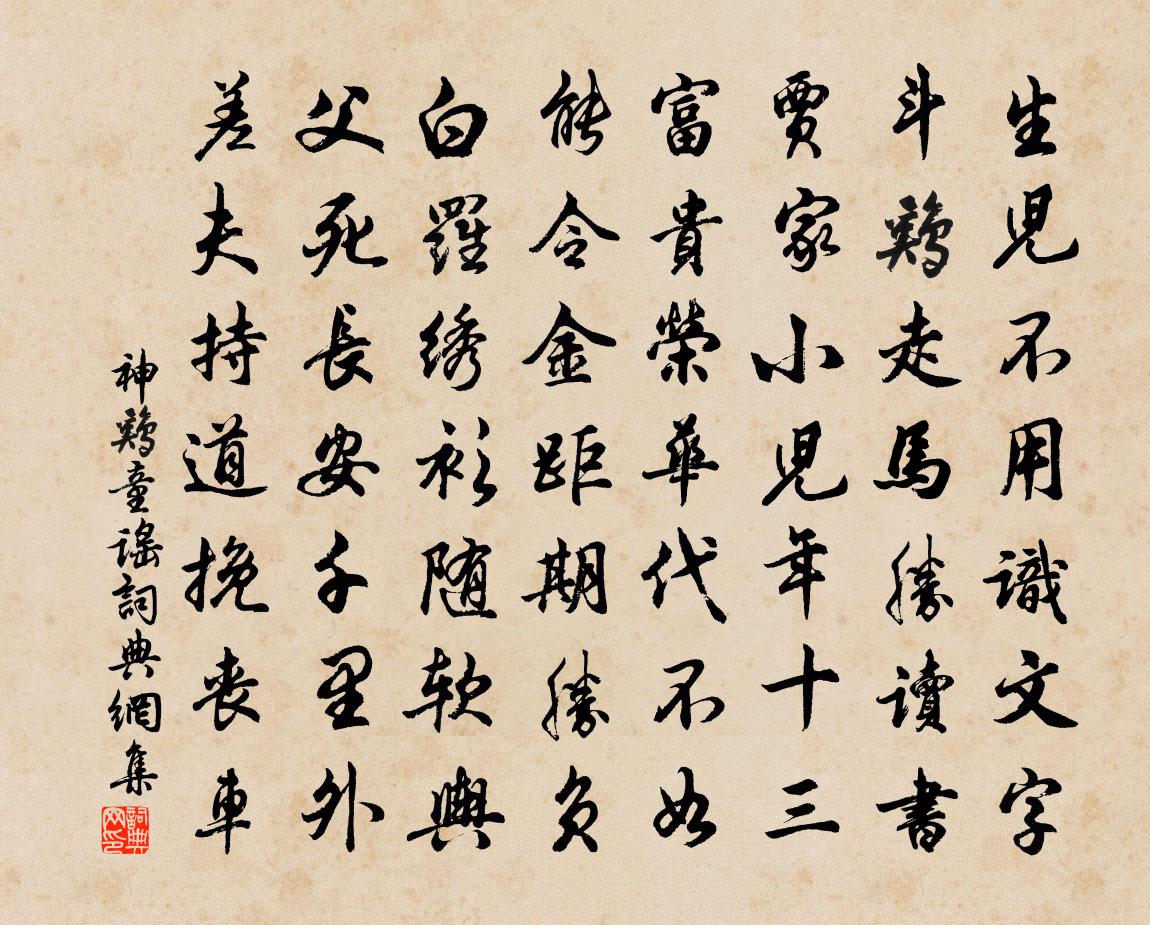 生児不用識文字
斗鷄走馬勝讀書
賈家小児年十三
富貴榮華代不如
能令金距期勝負
白羅綉衫随軟輿
父死長安千里外
差夫持道挽丧車
神鷄童謠詞典網集
詞典网印